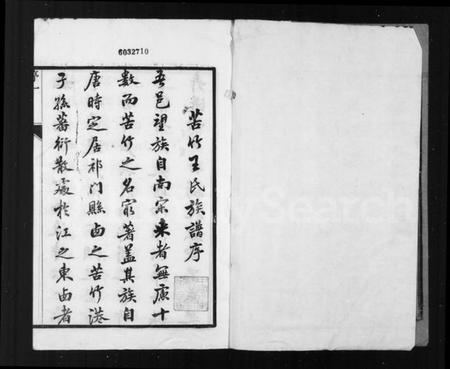 6032710
苦竹王氏族譜序
吾邑望族自南宋来者無慮十
數而苦竹之名最著蓋其族自
唐時定居祁門縣西之苦竹港
子孫蕃衍散處於江之東西者